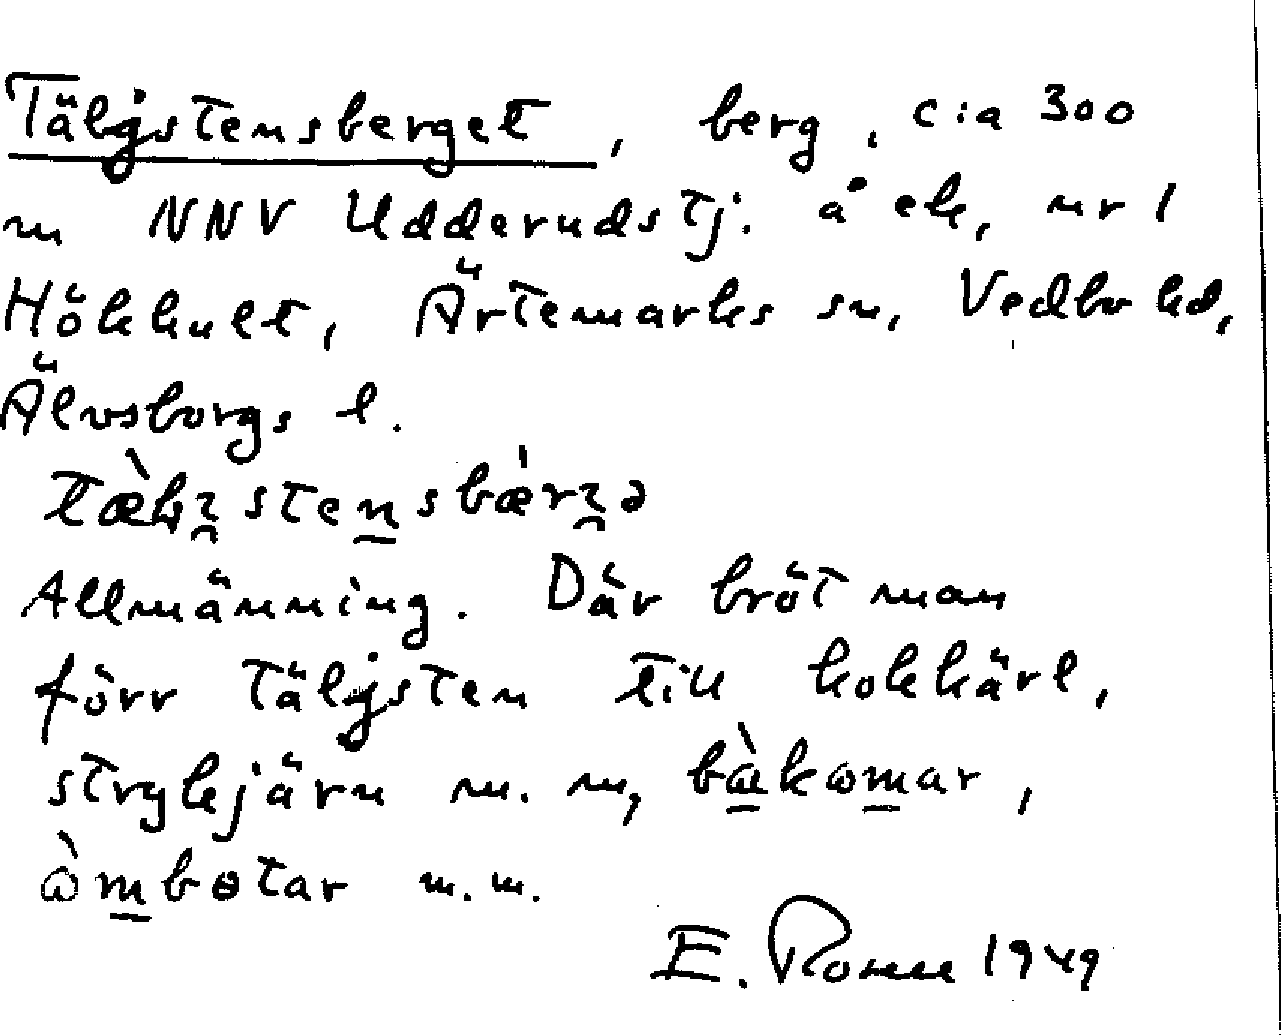 Täljstensberget, berg, c:a 300
m NNV Udderudstj. å ek, nr 1
Hökhult, Ärtemarks sn, Vedbo hd,
Älvsborgs l.
Allmänning. Där bröt man
förr täljsten till kokkärl,
strykjärn m. m, bàkomar,
òmbotar m.m.
E. Rosell 1949